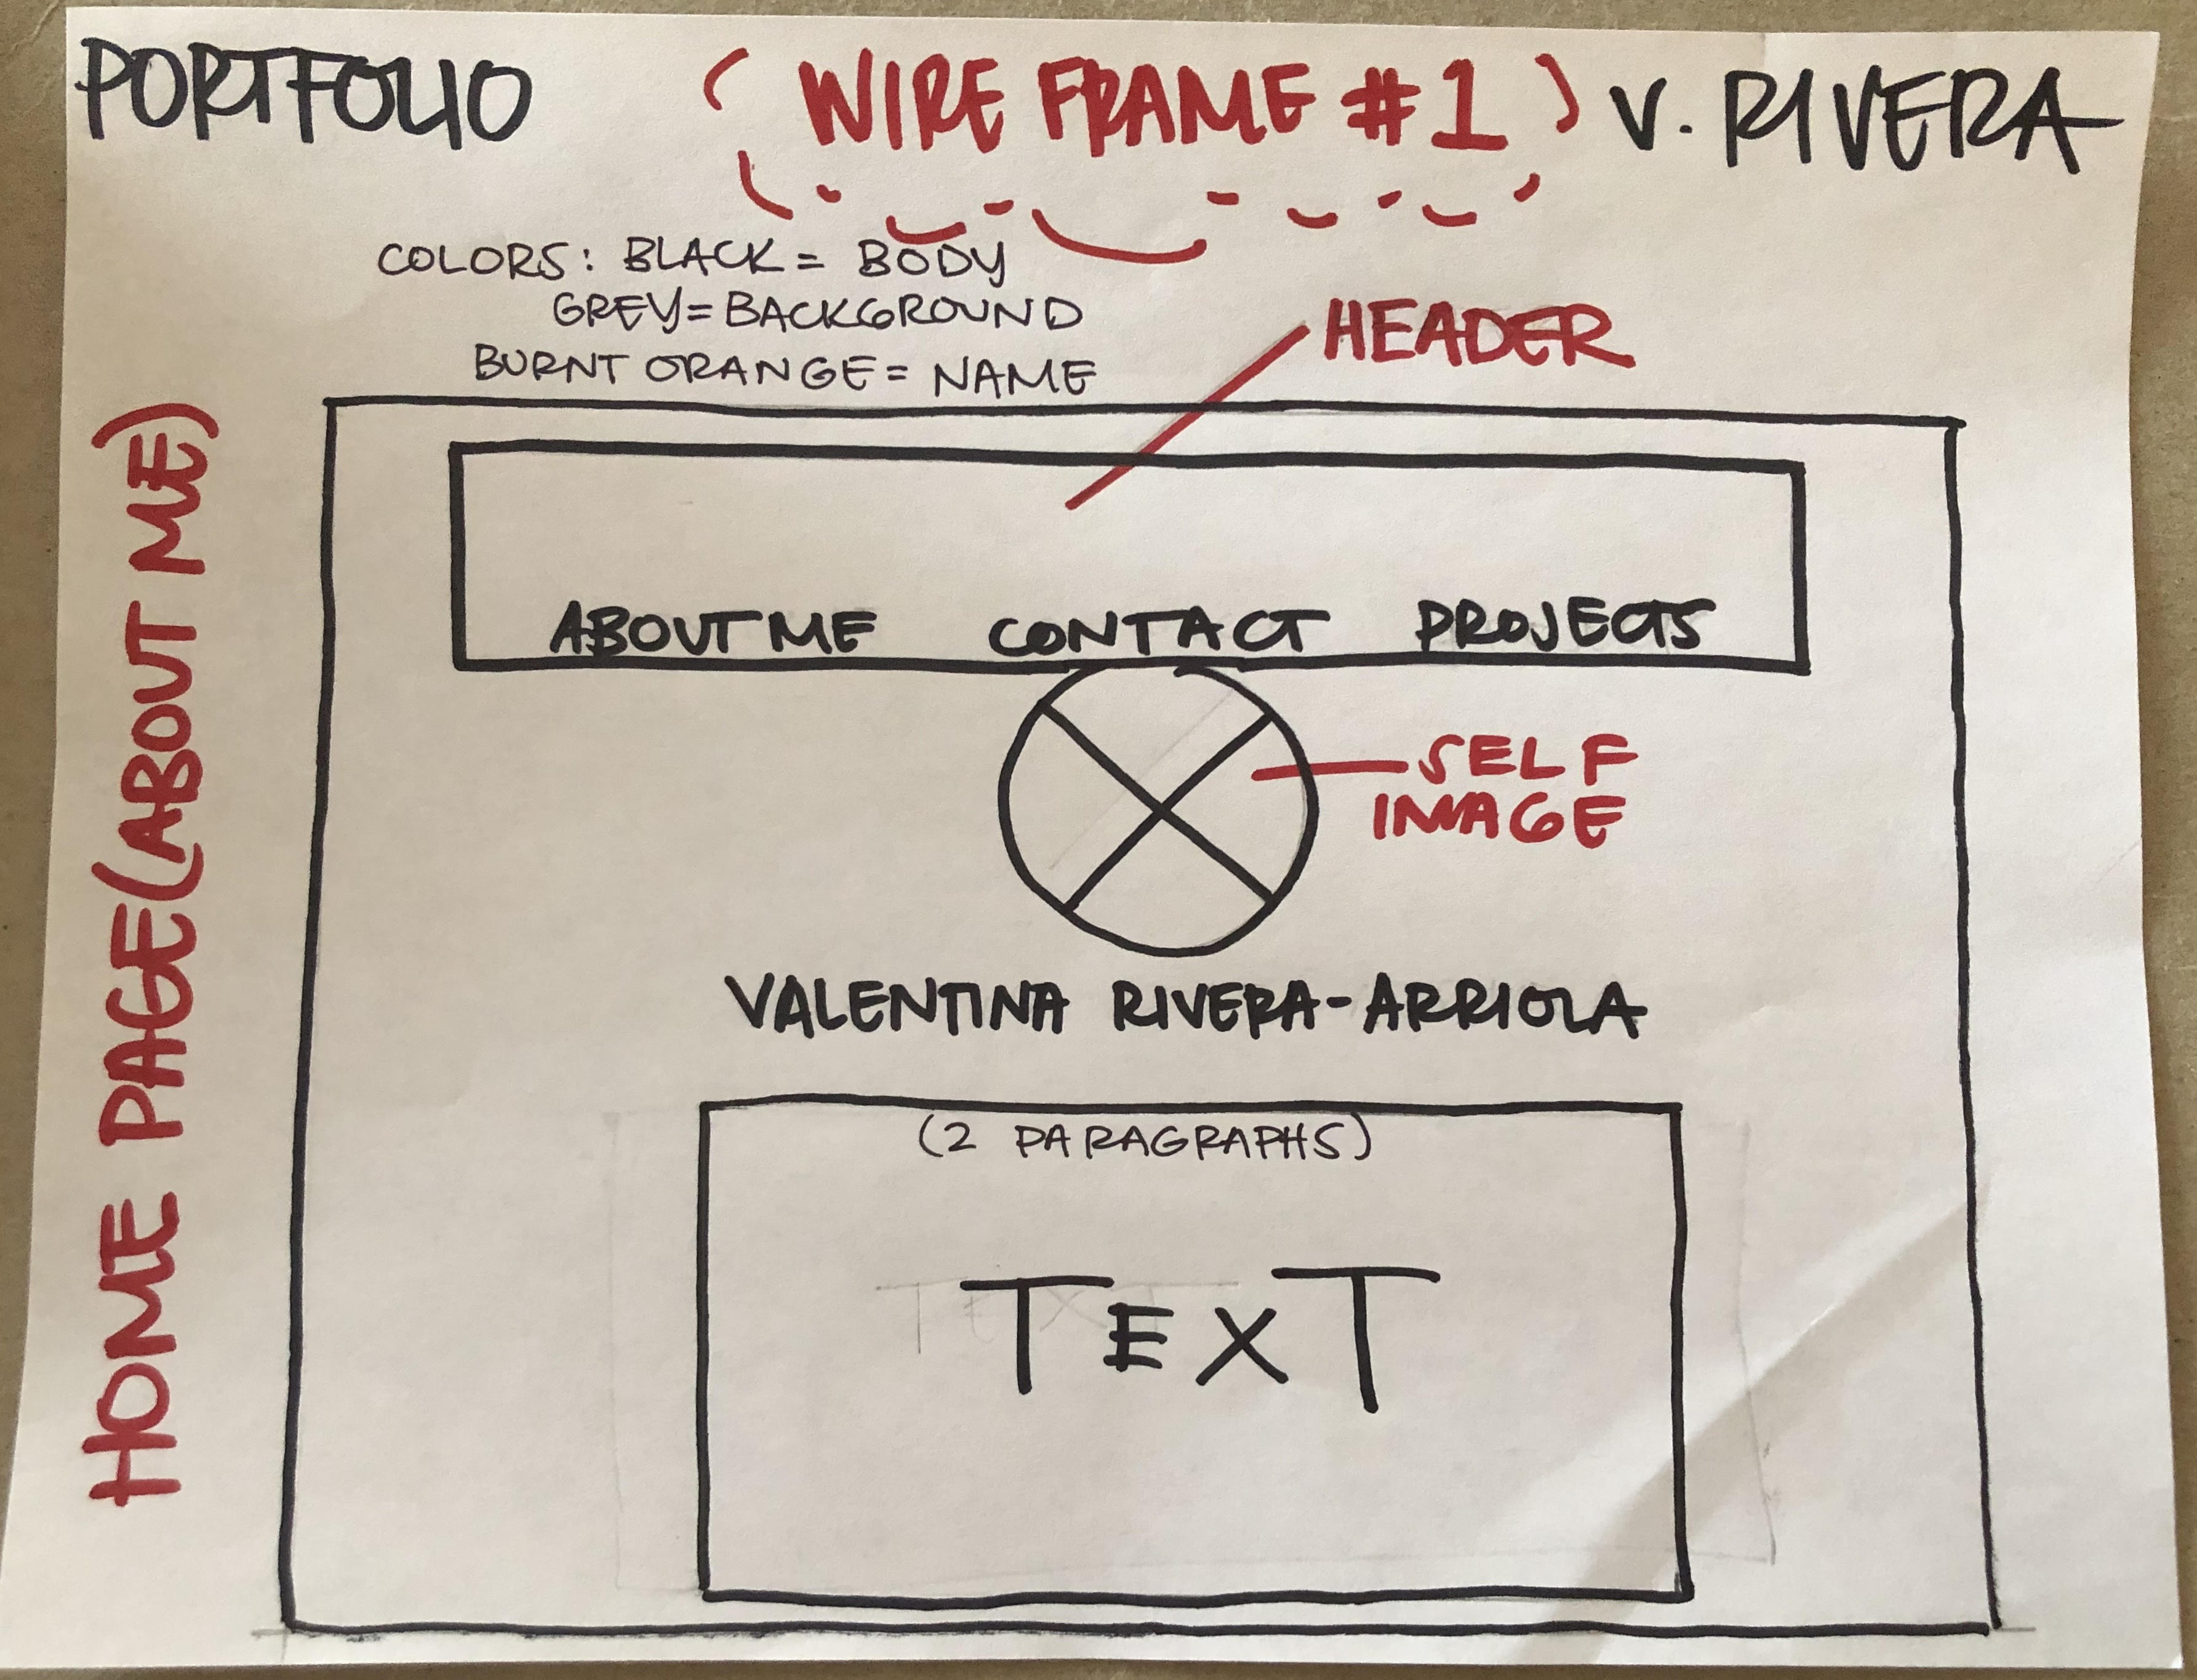 PORTFOLIO (WIRE FRAME #1) V. RIVERA
COLORS: BLACK = BODY
GREY = BACKGROUND
BURNT ORANGE = NAME
HEADER
HOME PAGE (ABOUT ME)
ABOUT ME CONTACT PROJECTS
SELF
IMAGE
VALENTINA RIVERA-ARRIOLA
(2 PARAGRAPHS)
TEXT